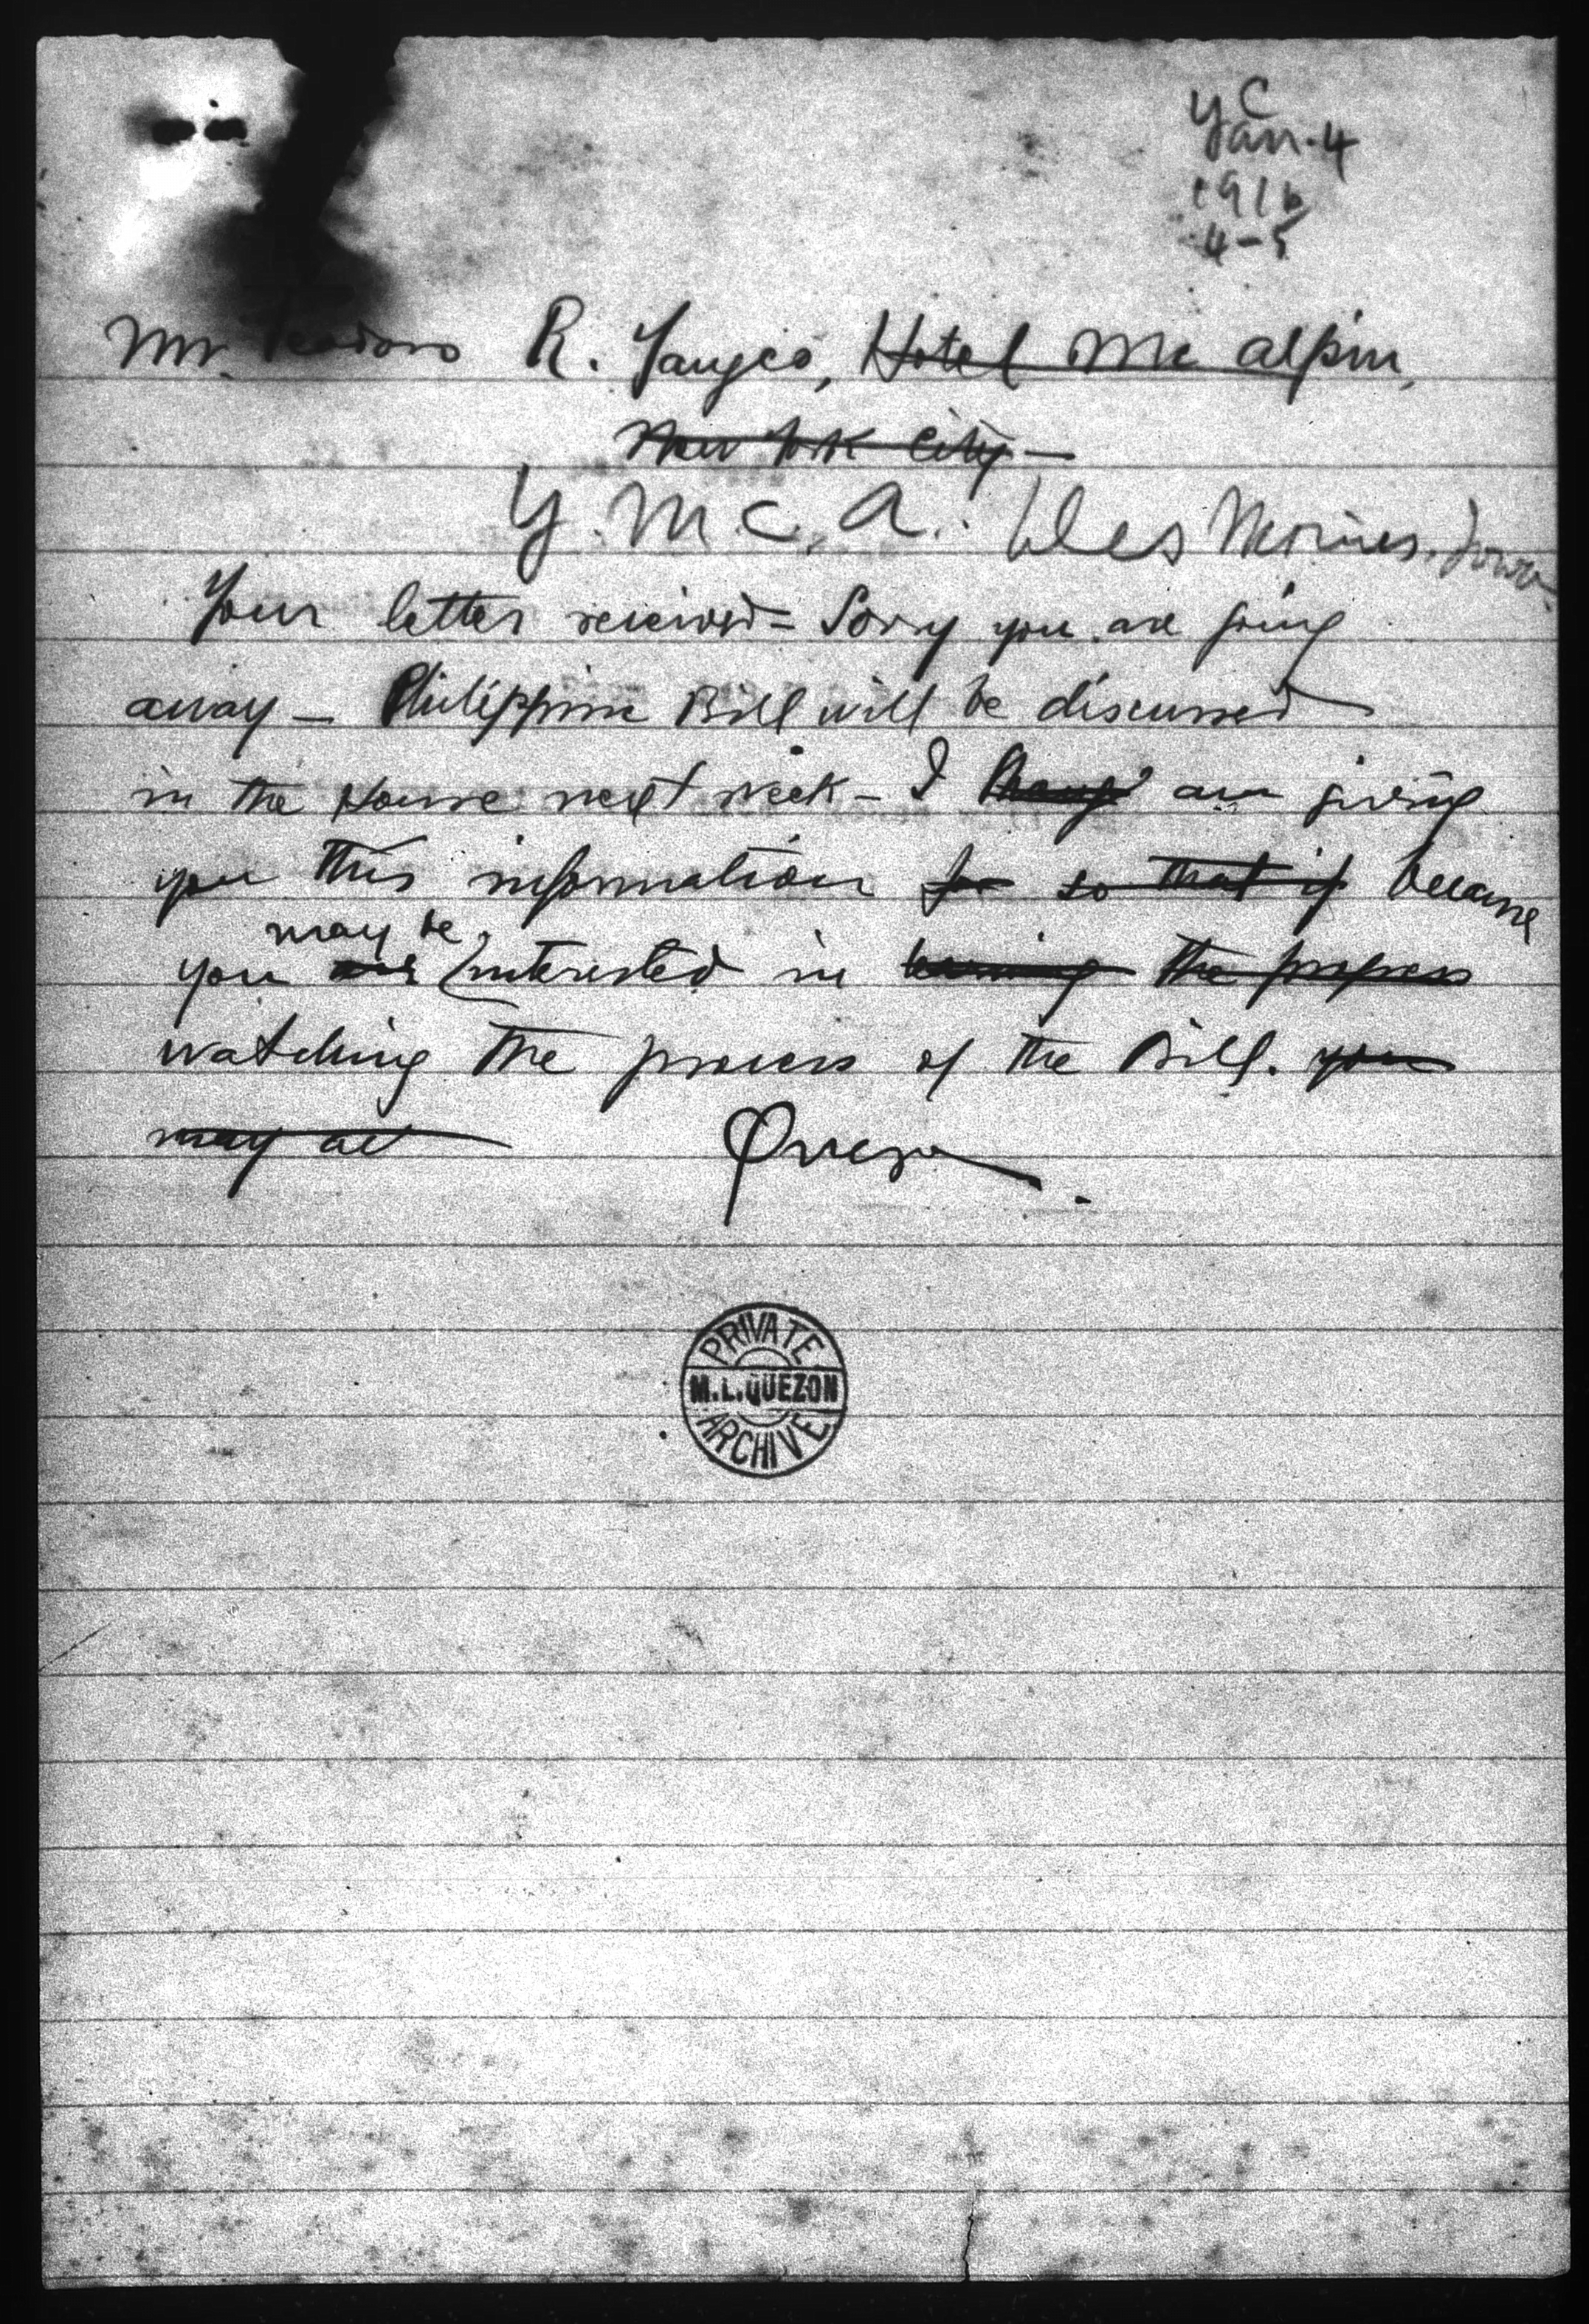 Y C
Jan. 4
1916
4-5
Mr. Teodoro R. Yangco, Hotel Mc Alpin,
New York City —
Y. M. C. A. Des Moines. Iowa.
Your letter received = Sorry you are going
away — Philippine Bill will be discussed
in the House next week — I am giving
you this information for so that if because
may be
you are interested in the progress
watching the process of the Bill. you
may
Quezon.
PRIVATE
M.L.QUEZON
ARCHIVE